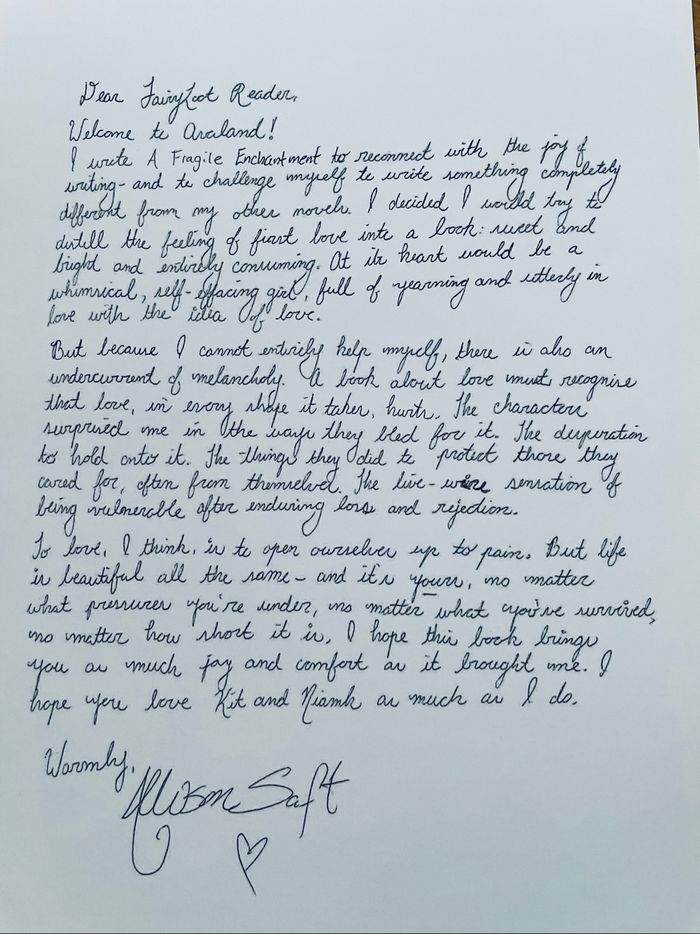 Dear FairyLoot Reader,
Welcome to Avaland!
I wrote A Fragile Enchantment to reconnect with the joy of
writing - and to challenge myself to write something completely
different from my other novels. I decided I would try to
distill the feeling of first love into a book: sweet and
bright and entirely consuming. At its heart would be a
whimsical, self-effacing girl, full of yearning and utterly in
love with the idea of love.
But because I cannot entirely help myself, there is also an
undercurrent of melancholy. A book about love must recognise
that love, in every shape it takes, hurts. The characters
surprised me in the ways they bled for it. The desperation
to hold onto it. The things they did to protect those they
cared for, often from themselves. The live-wire sensation of
being vulnerable after enduring loss and rejection.
To love, I think, is to open ourselves up to pain. But life
is beautiful all the same - and it's yours, no matter
what pressures you're under, no matter what you've survived,
no matter how short it is. I hope this book brings
you as much joy and comfort as it brought me. I
hope you love Kit and Niamh as much as I do.
Warmly,
Allison Saft